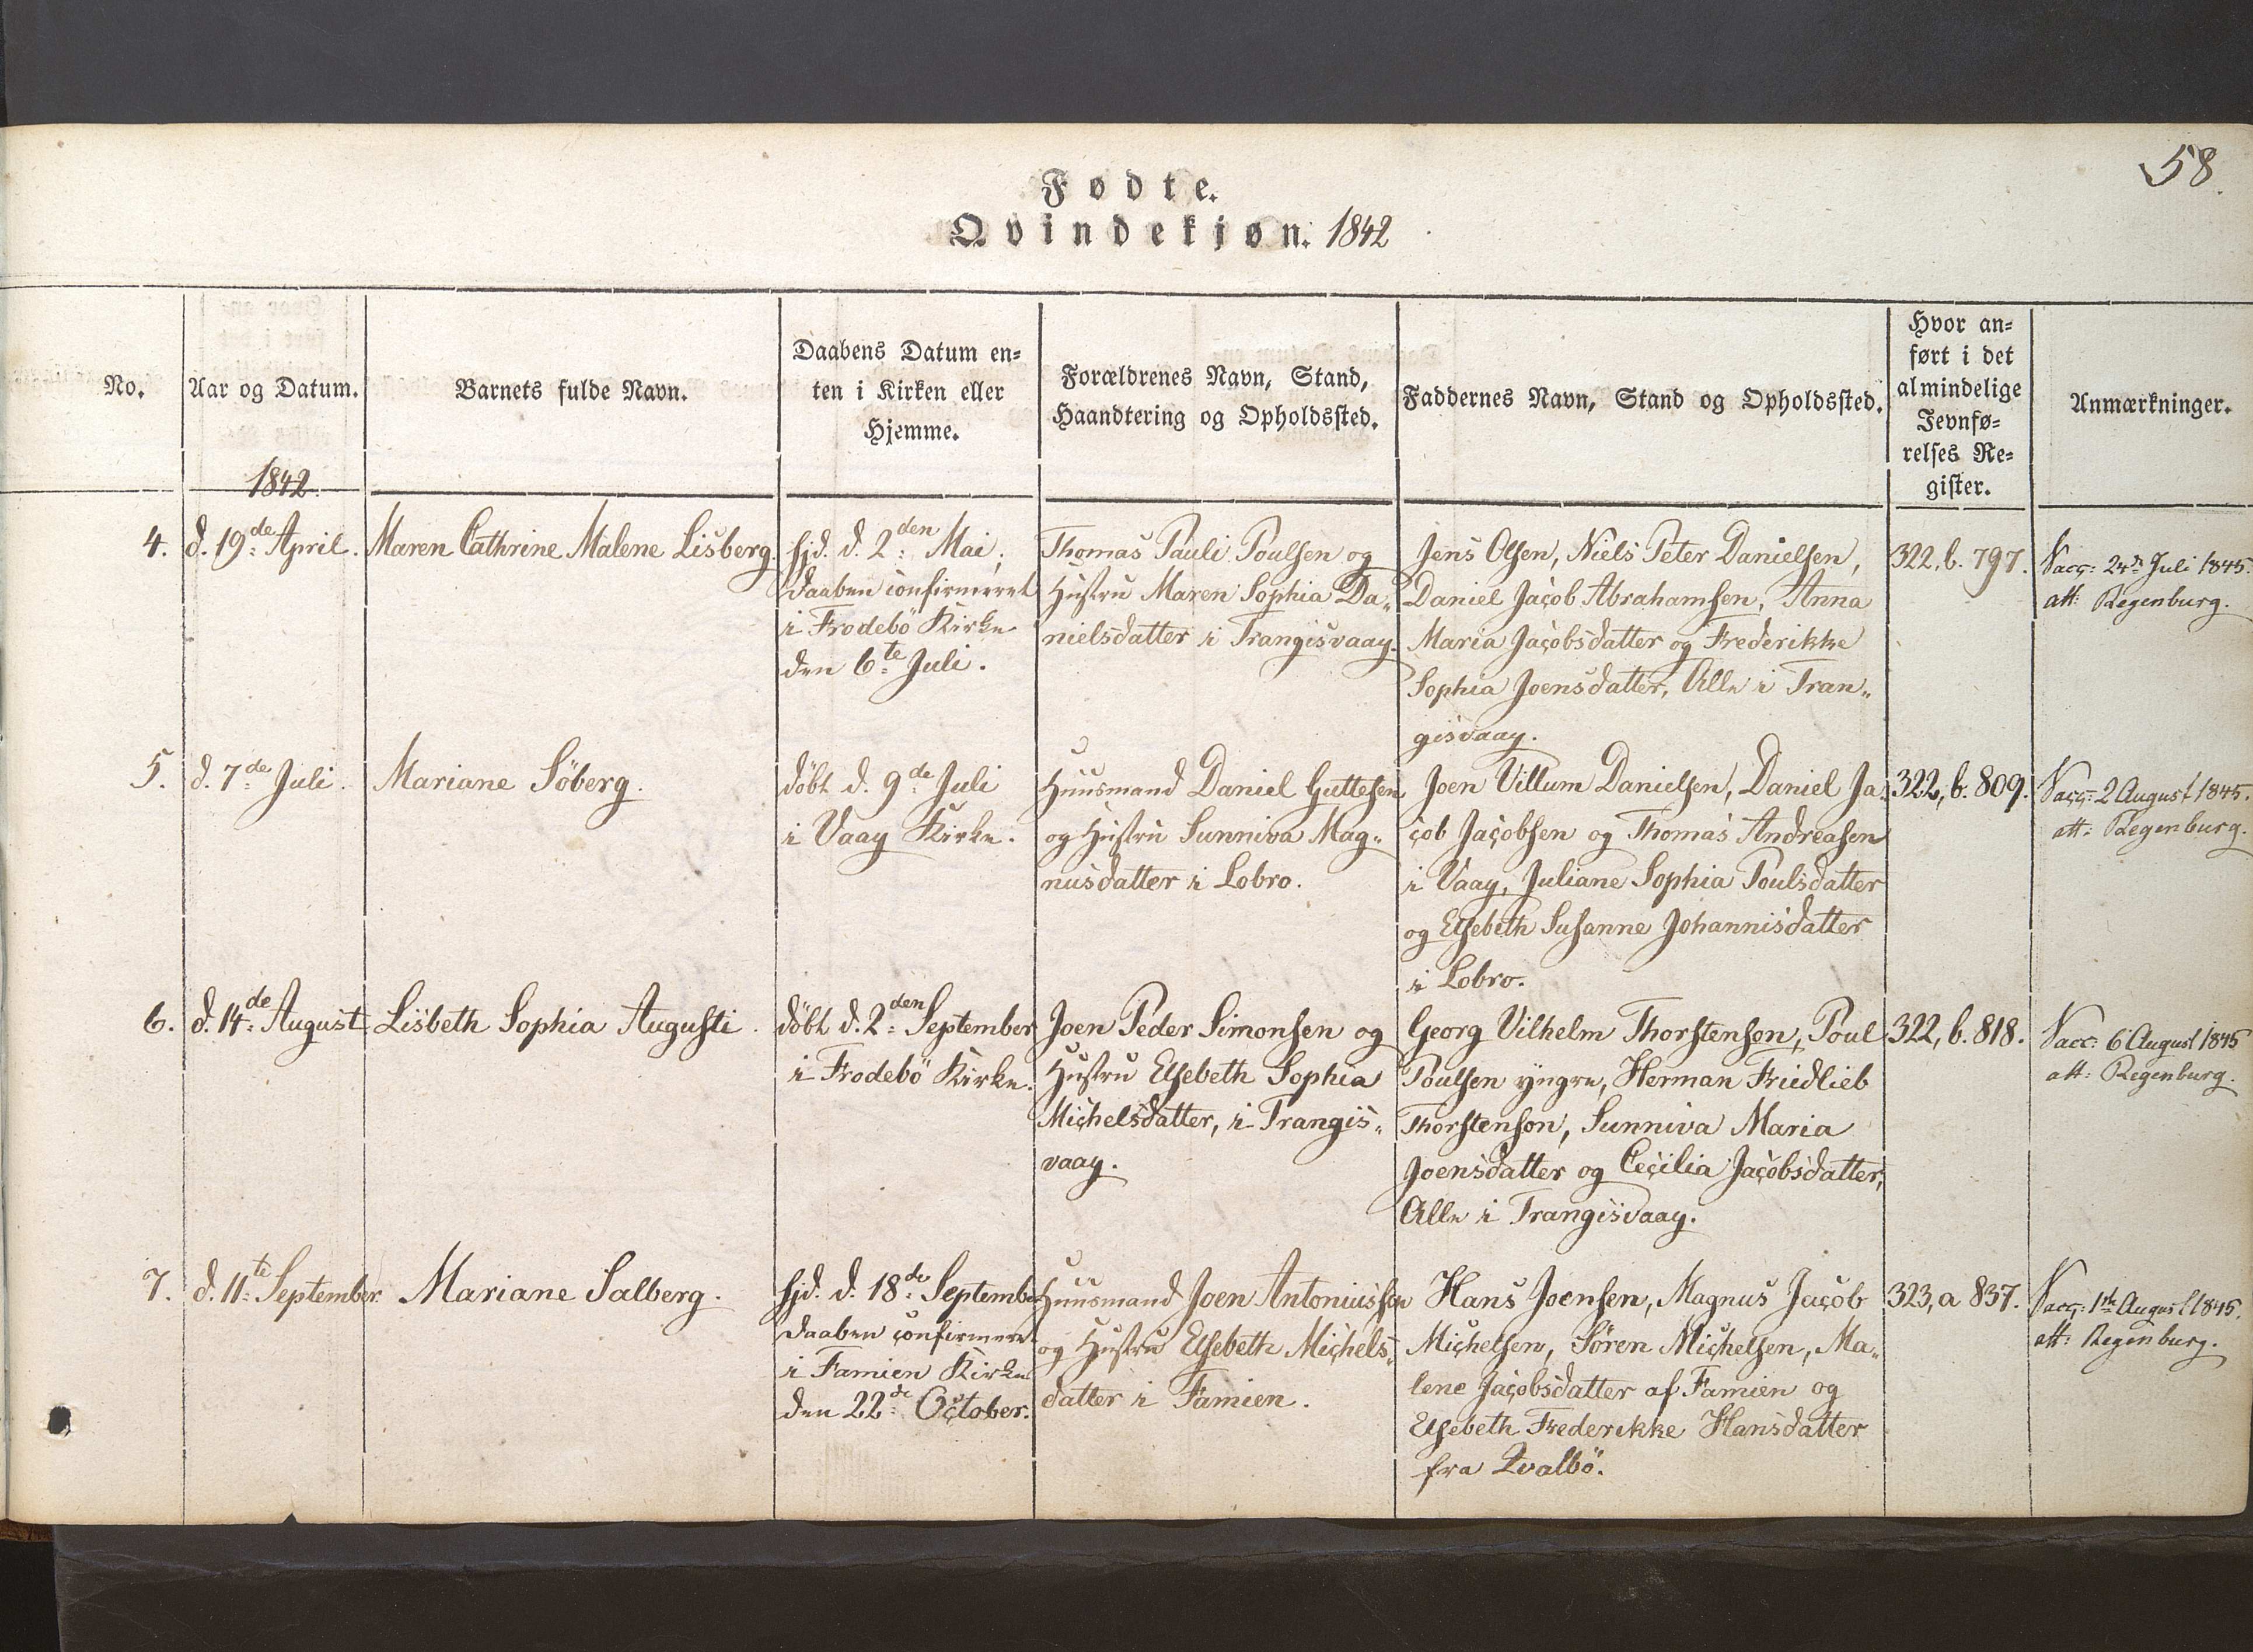 58.
Fødte.
Qvindekjøn. 1842
No.
Aar og Datum.
1842
Barnets fulde Navn.
Daabens Datum en-
ten i Kirken eller
Hjemme.
Forældrenes Navn, Stand,
Haandtering og Opholdssted.
Faddernes Navn, Stand og Opholdssted.
Hvor an-
ført i det
almindelige
Jevnfø-
relses Re-
gister.
Anmærkninger.
4.
d. 19de April.
Maren Cathrine Malene Lisberg.
hjd. d. 2den Mai,
Daaben confirmeret
i Frodebö Kirke
den 6te Juli.
Thomas Pauli Poulsen og
Hustru Maren Sophia Da-
nielsdatter i Trangisvaag.
Jens Olsen, Niels Peter Danielsen,
Daniel Jacob Abrahamsen, Anna
Maria Jacobsdatter og Frederikke
Sophia Joensdatter, Alle i Tran-
gisvaag.
322, b. 797.
Vacc: 24de Juli 1845.
att: Regenburg.
5.
d. 7de Juli.
Mariane Söberg.
döbt d. 9de Juli
i Vaag Kirke.
Huusmand Daniel Guttesen
og Hustru Sunniva Mag-
nusdatter i Lobro.
Joen Villum Danielsen, Daniel Ja-
cob Jacobsen og Thomas Andreasen
i Vaag, Juliane Sophia Poulsdatter
og Elsebeth Susanne Johannisdatter
i Lobro.
322, b. 809.
Vacc: 2 August 1845.
att: Regenburg.
6.
d. 14de August
Lisbeth Sophia Augusti.
döbt d. 2den September
i Frodebö Kirke.
Joen Peder Simonsen og
Hustru Elsebeth Sophia
Michelsdatter, i Trangis-
vaag.
Georg Vilhelm Thorstensen, Poul
Poulsen yngre, Herman Friedlieb
Thorstenson, Sunniva Maria
Joensdatter og Cecilia Jacobsdatter,
Alle i Trangisvaag.
322, b. 818.
Vacc: 6 August 1845
att: Regenburg.
7.
d. 11te September.
Mariane Salberg.
hjd. d. 18de September
Daaben confirmeret
i Famien Kirke
den 22de October.
Huusmand Joen Antoniussen
og Hustru Elsebeth Michels-
datter i Famien.
Hans Joensen, Magnus Jacob
Michelsen, Sören Michelsen, Ma-
lene Jacobsdatter af Famien og
Elsebeth Frederikke Hansdatter
fra Qvalbö.
323, a 837.
Vacc: 1ste August 1845.
att: Regenburg.